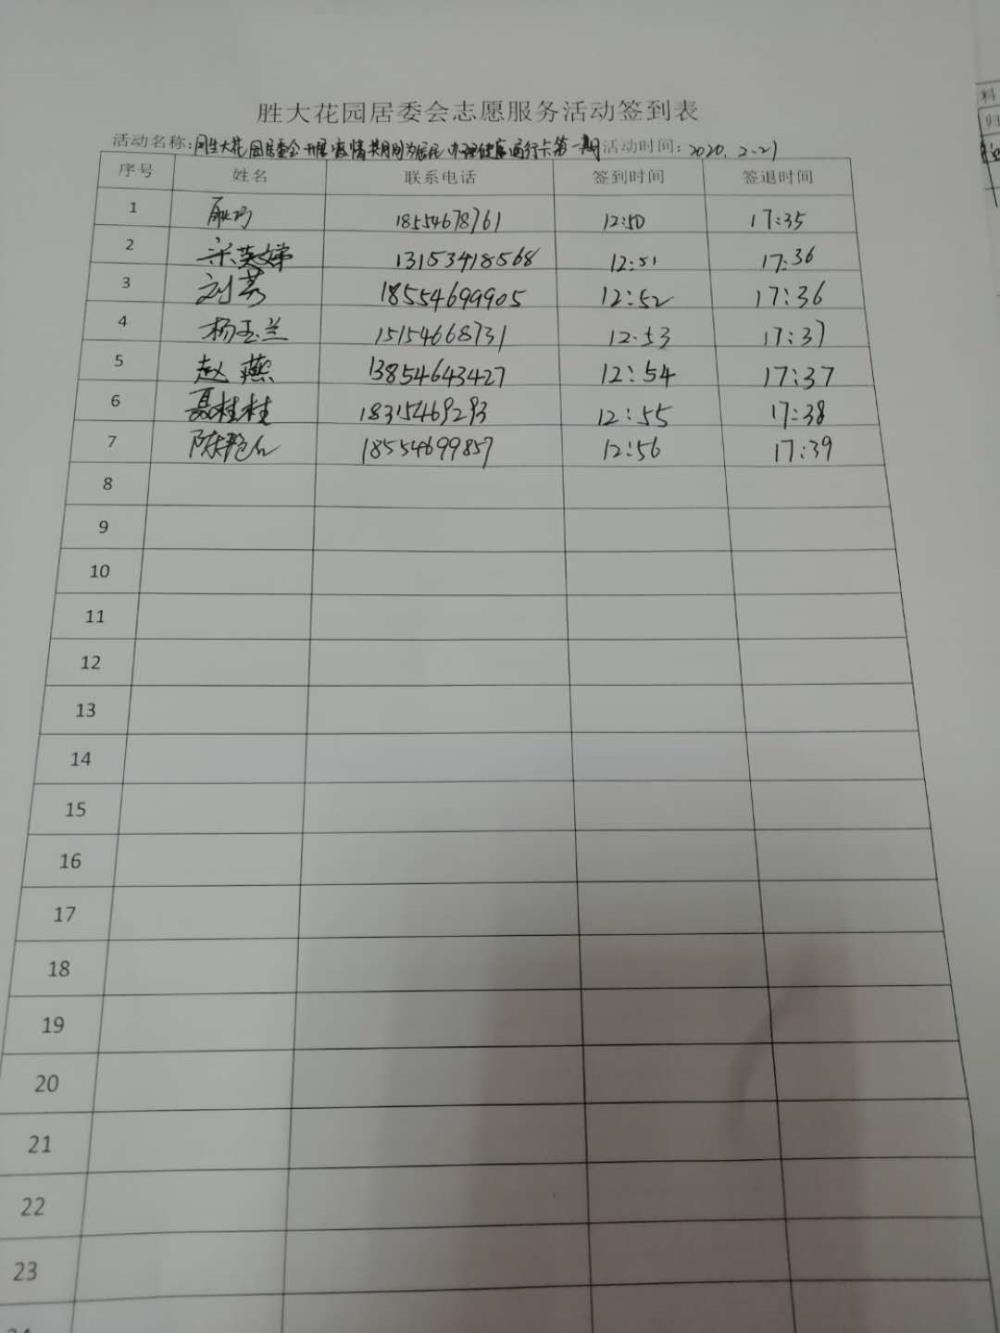 胜大花园居委会志愿服务活动签到表
活动名称:胜大花园居委会开展疫情期间为居民办理健康通行卡第一期 活动时间: 2020.2.27
序号 姓名 联系电话 签到时间 签退时间
1 18554678761 12:50 17:35
2 宋英娣 13153418568 12:51 17:36
3 刘芳 18554699905 12:52 17:36
4 杨玉兰 15154668731 12:53 17:37
5 赵燕 13854643427 12:54 17:37
6 聂桂枝 18315469293 12:55 17:38
7 陈 18554699857 12:56 17:39
8
9
10
11
12
13
14
15
16
17
18
19
20
21
22
23
24
料
归